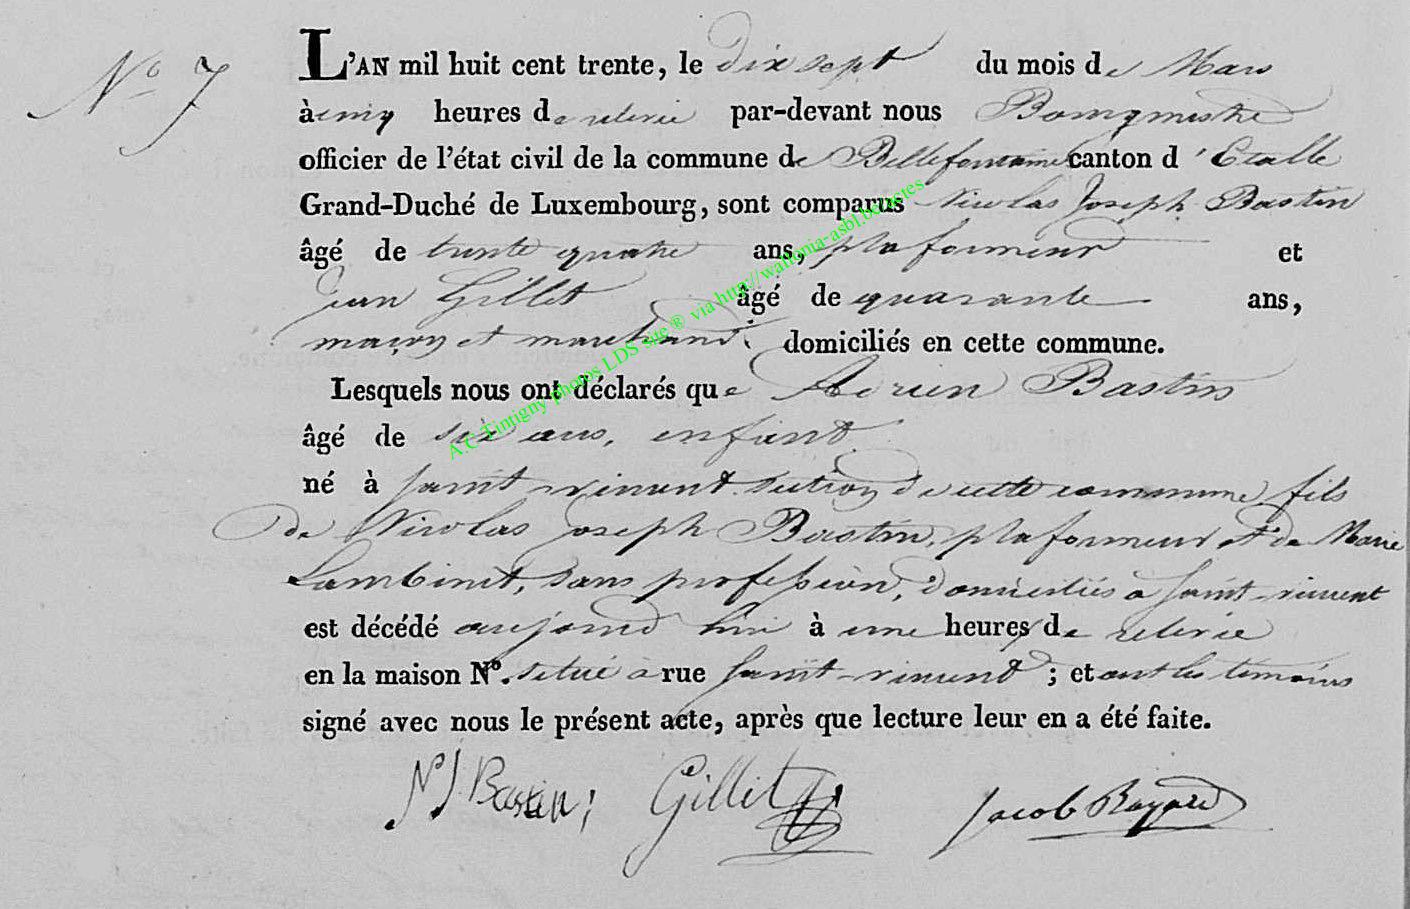 N° 7
L'AN mil huit cent trente, le dix sept du mois de Mars
à cinq heures de relevée par-devant nous Bourgmestre
officier de l'état civil de la commune de Bellefontaine canton d'Etalle
Grand-Duché de Luxembourg, sont comparus Nicolas Joseph Bastin
âgé de trente quatre ans, plafonneur et
Jean Gillet âgé de quarante ans,
maçon et marchand, domiciliés en cette commune.
Lesquels nous ont déclarés que Adrien Bastin
âgé de six ans, enfant
né à Saint-vincent section de cette commune fils
de Nicolas Joseph Bastin, plafonneur et de Marie
Lambinet, sans profession, domiciliés à Saint-vincent
est décédé aujourd'hui à une heures de relevée
en la maison N°. situé à rue Saint-vincent ; et ont les témoins
signé avec nous le présent acte, après que lecture leur en a été faite.
NJ Bastin; Gillet Jacob Bayard
A.C Tintigny photos LDS site ® via http://wallonia-asbl.be/actes